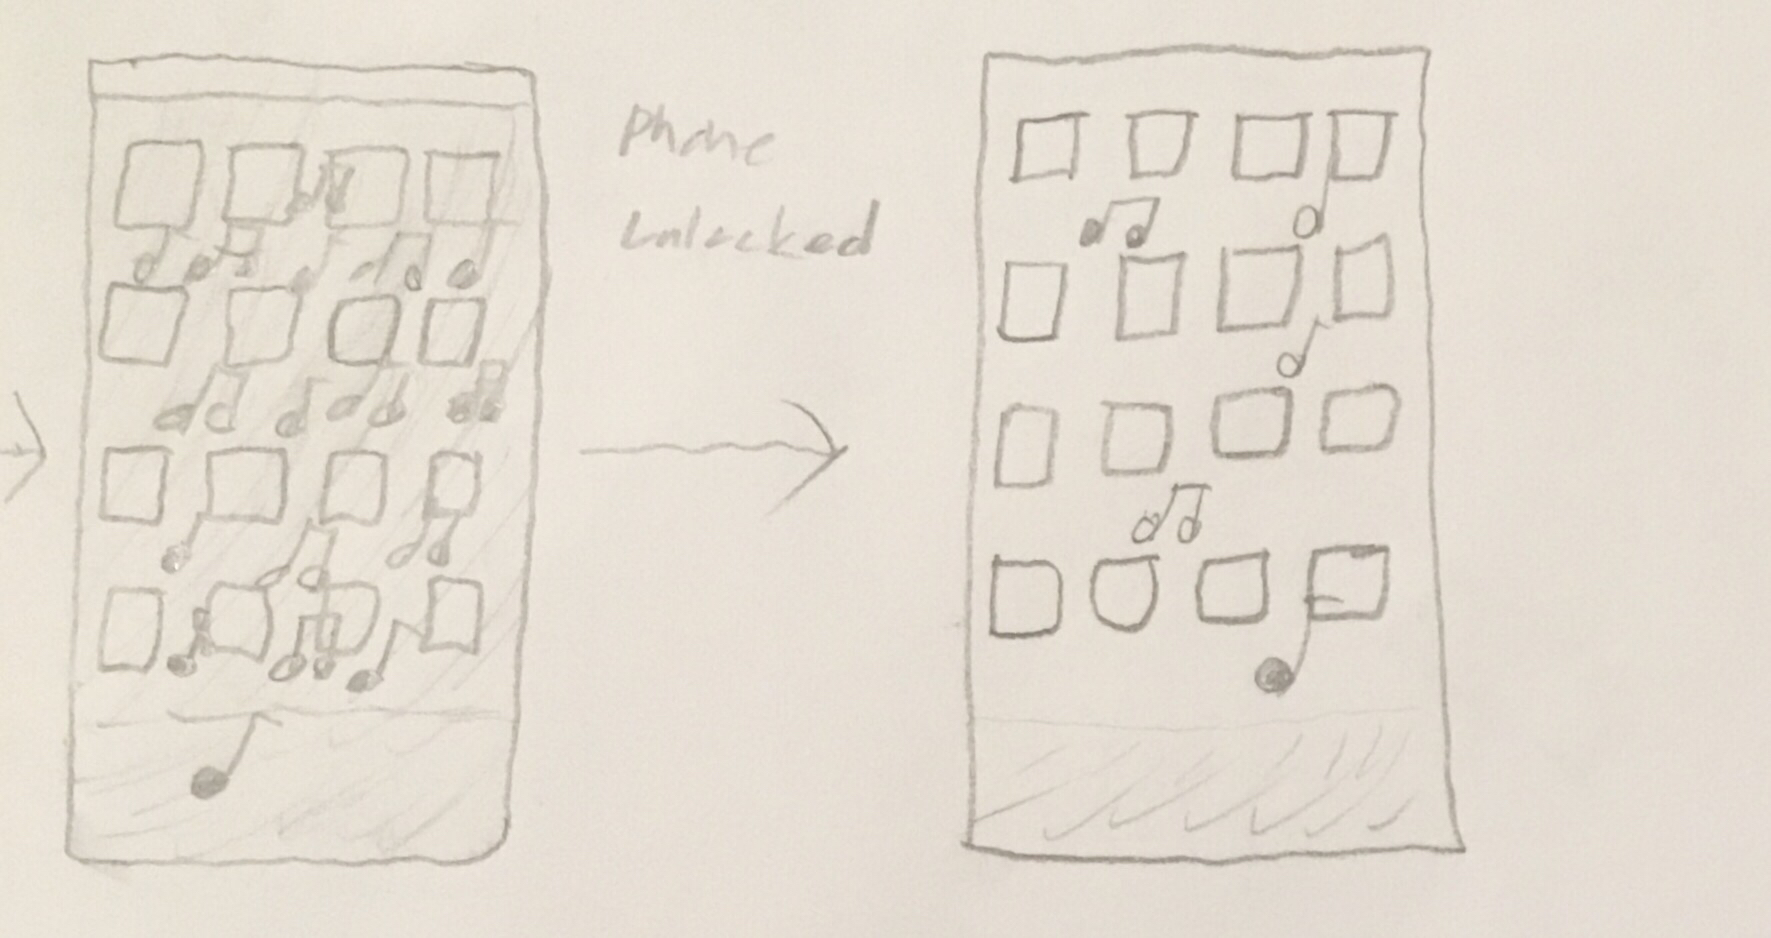 Phone
unlocked